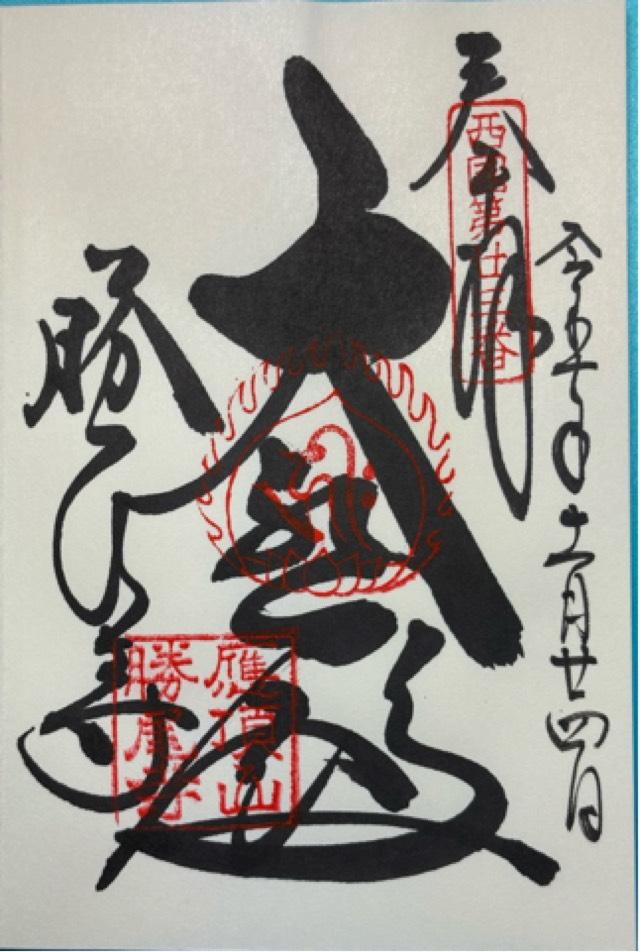 令和五年十一月廿四日
奉拝
西國第廿三番
大悲殿
勝尾寺
應頂山
勝尾寺